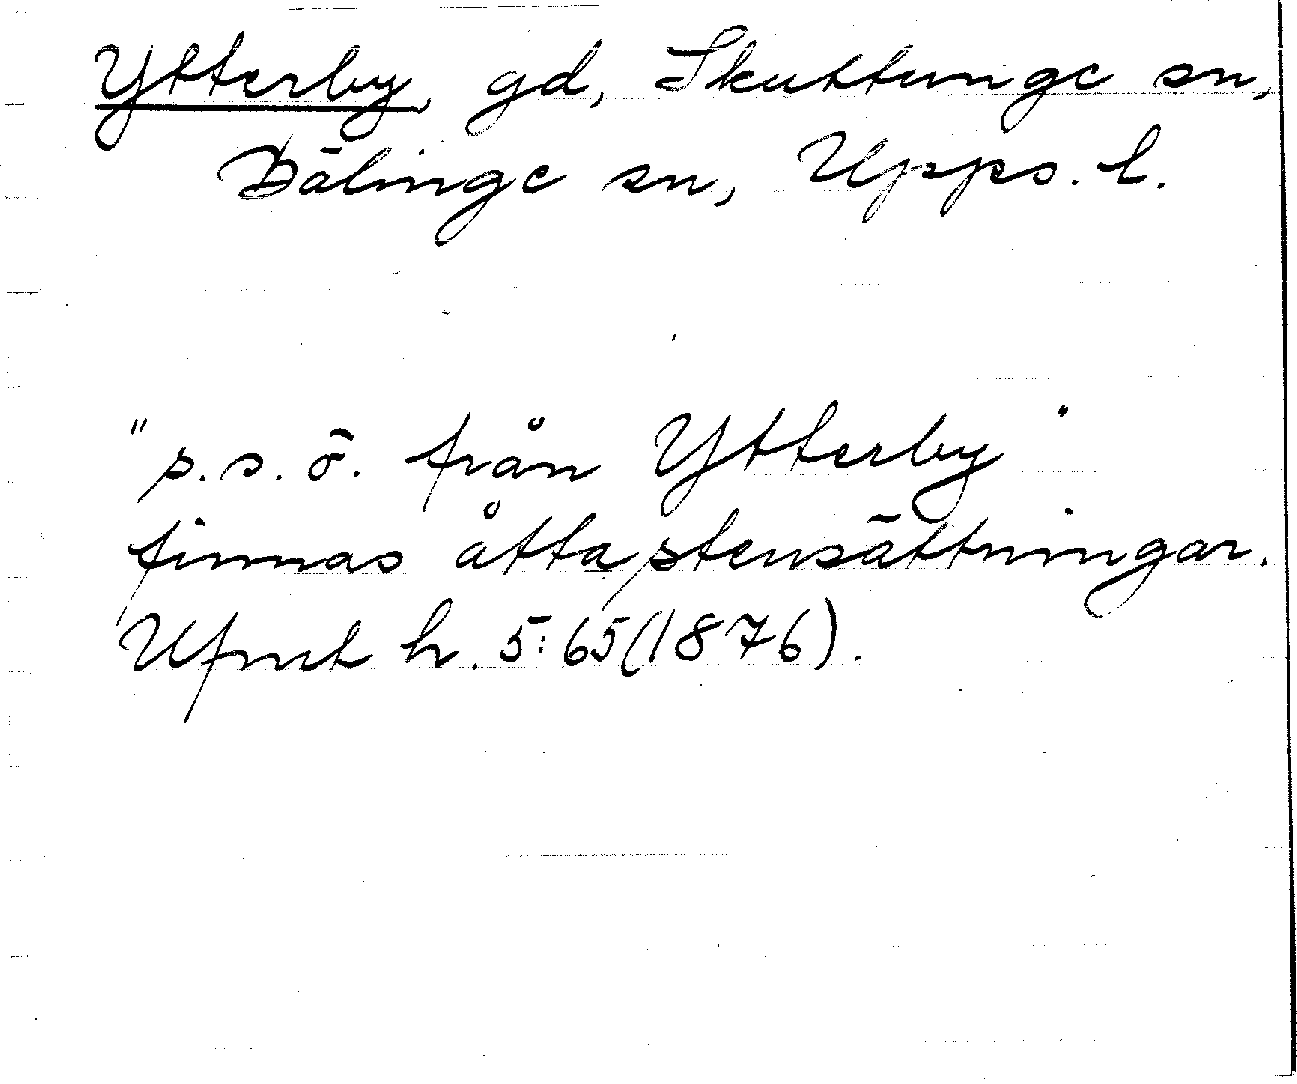 Ytterby, gd, Skuttunge sn,
Bälinge sn, Upps. l.
"s.s.ö. från Ytterby"
finnas åtta stensättningar.
Ufmt h. 5:65(1876).